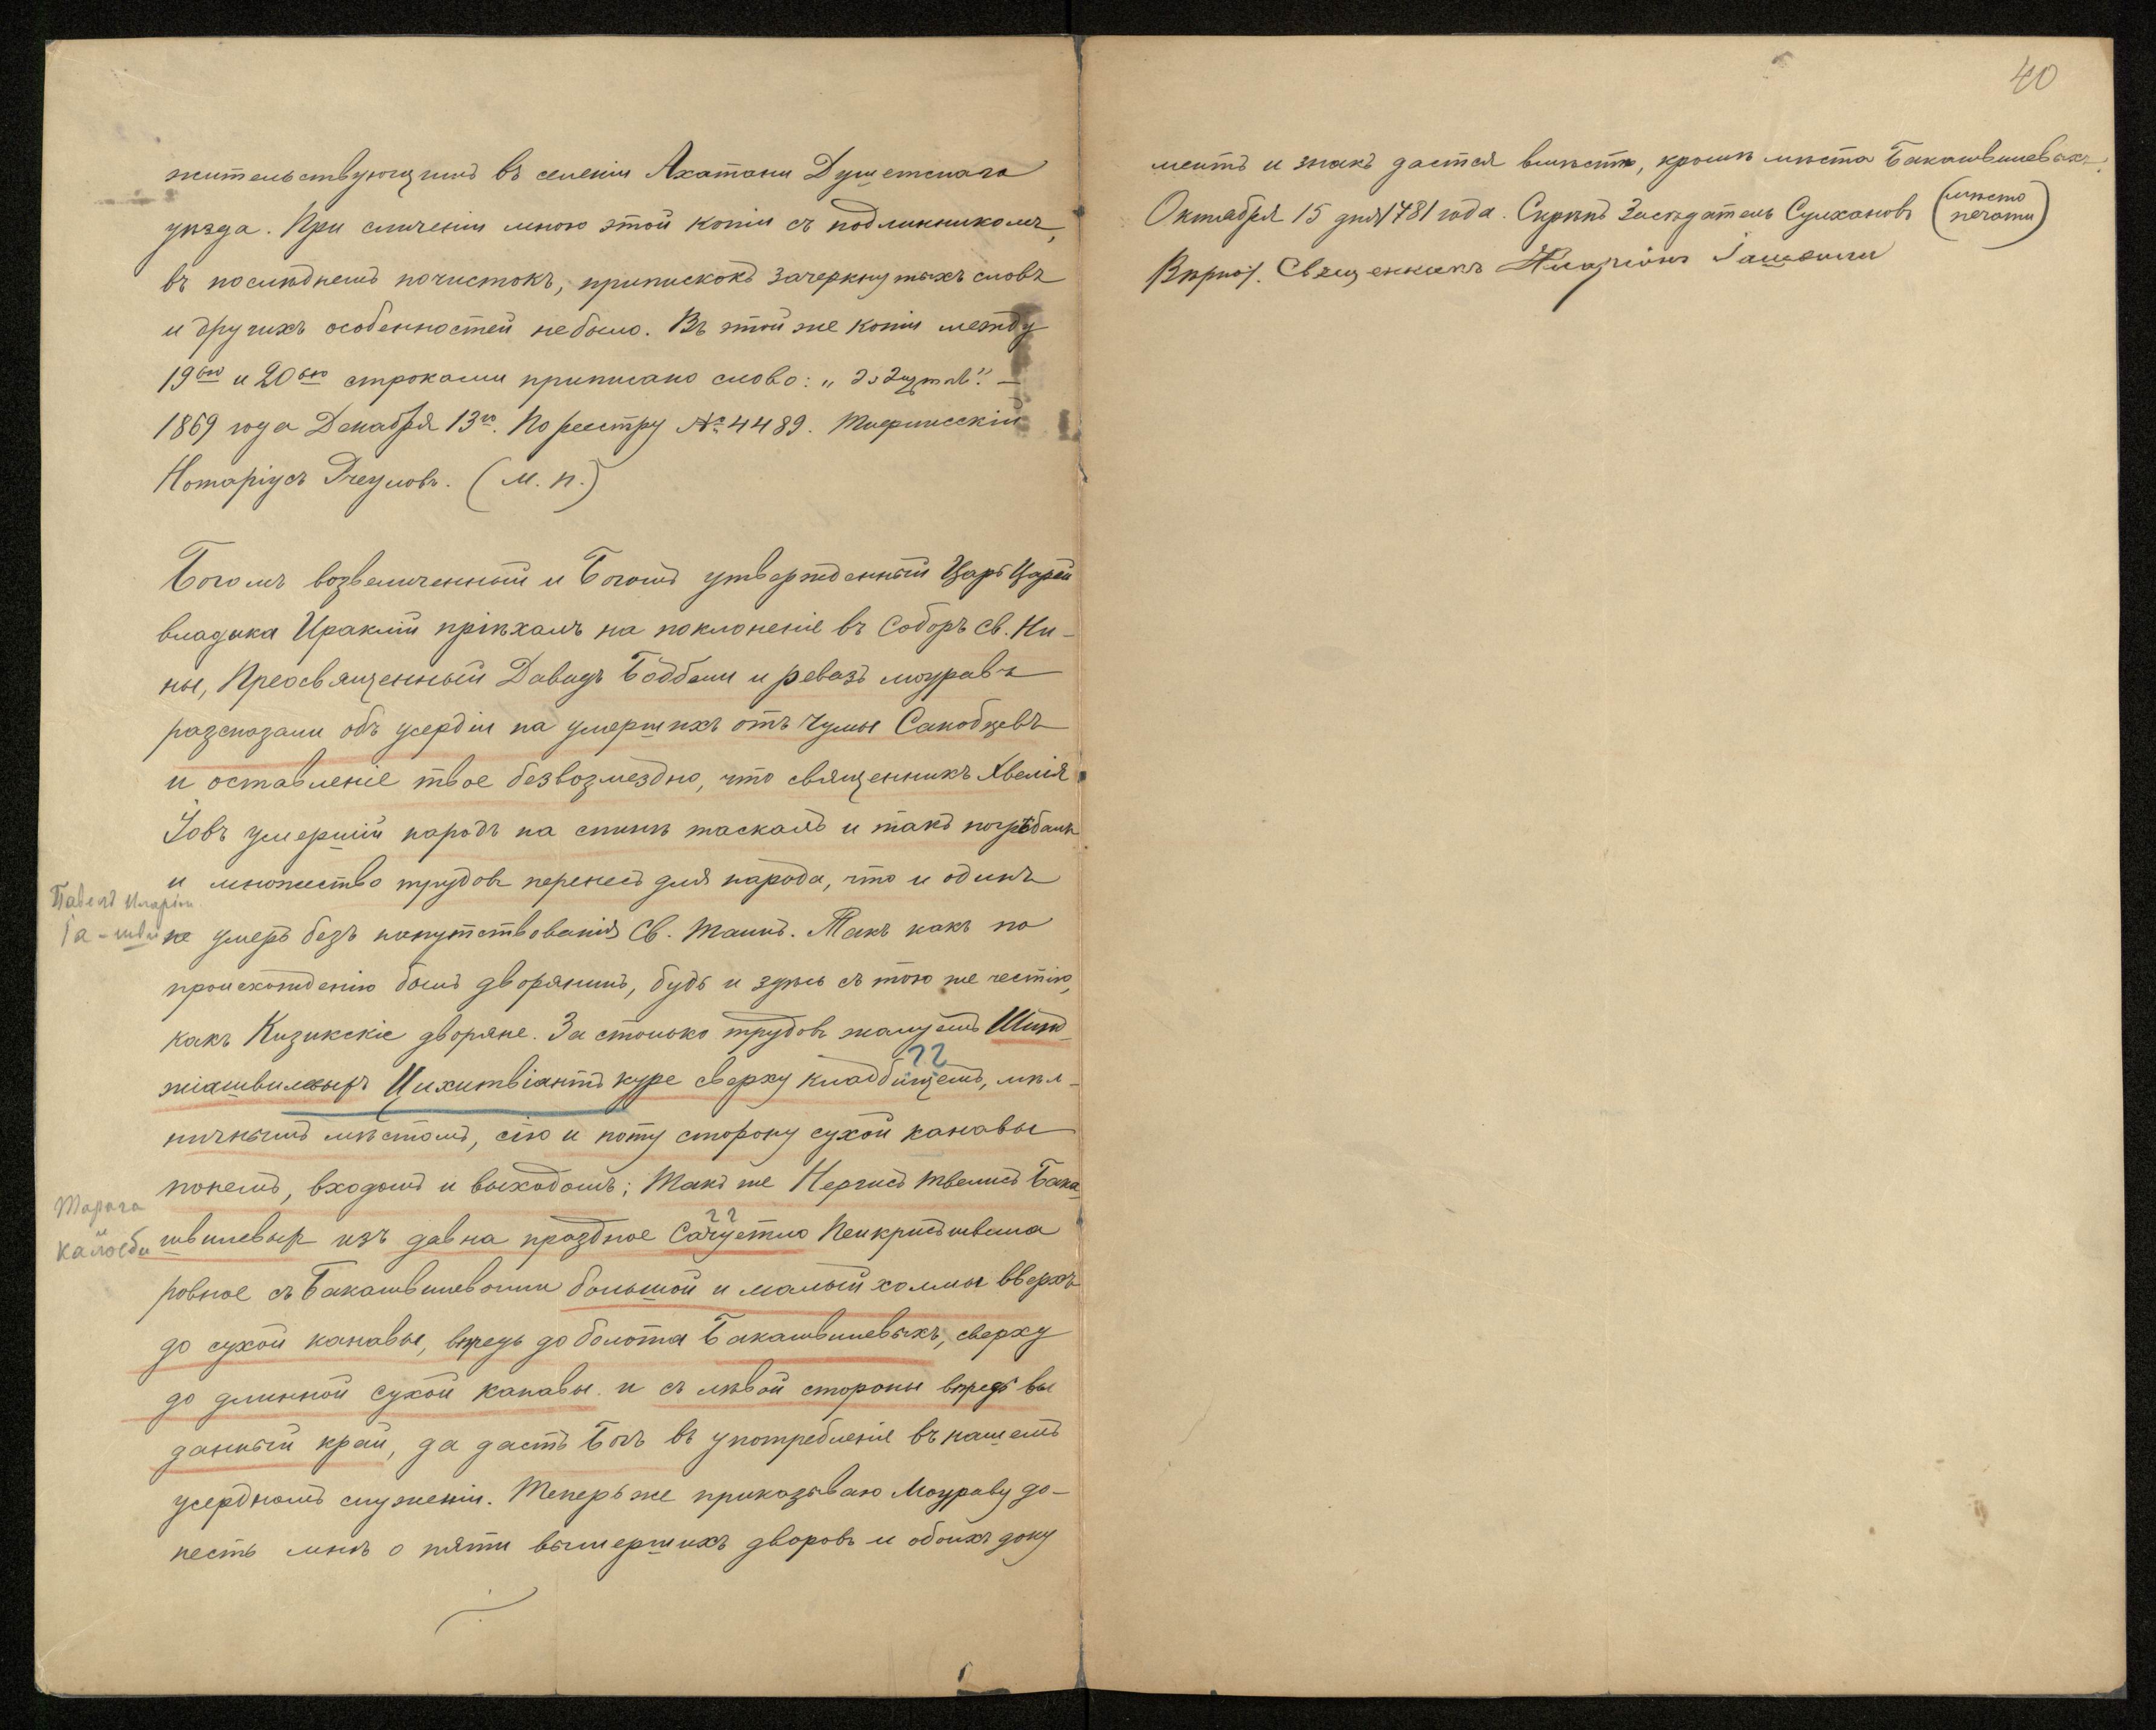 жительствующимъ въ селеніи Ахатани Душетскаго
уѣзда. При сличеніи мною этой копіи съ подлинникомъ,
въ послѣднемъ почистокъ, приписокъ зачеркнутыхъ словъ
и другихъ особенностей небыло. Въ этой же копіи между
19ою и 20ою строками приписано слово:
1869 года Декабря 13го. По реестру № 4489. Тифлисскій
Нотаріусъ (М. п.)
Богомъ возвеличенный и Богомъ утвержденный Царь Царей
владыка Ираклій пріѣхалъ на поклоненіе въ Соборъ Св. Ни-
ны, Преосвященный Давидъ Бодбели и Ревазъ моуравъ
разсказали объ усердіи на умершихъ отъ чумы
и оставленіе твое безвозмездно, что священникъ Хвелія
Іовъ умершій народъ на спинѣ таскалъ и такъ погребалъ
и множество трудовъ перенесъ для народа, что и одинъ
не умеръ безъ напутствованія Св. Таинъ. Такъ какъ по
происхожденію былъ дворянинъ, будь и здѣсь съ тою же честію,
какъ Кизикскіе дворяне. За столько трудовъ жалуемъ
Цихитвіантъ куре сверху кладбищемъ, мѣл-
ничнымъ мѣстомъ, сію и поту сторону сухой канавы
полемъ, входомъ и выходомъ; Такъ же Нергисъ твелисъ Бака-
швилевыхъ изъ давна праздное
ровное съ Бакашвилевыми большой и малый холмы вверхъ
до сухой канавы, впредь до болота Бакашвилевыхъ, сверху
до длинной сухой канавы и съ лѣвой стороны впредь вы
данный край, да дастъ Богъ въ употребленіе въ нашемъ
усердномъ служеніи. Теперь же приказываю Моураву до-
несть мнѣ о пяти вымершихъ дворовъ и обоихъ доку
Павелъ Иларіон.
Та-швил
и
калоеби
??
??
40
ментъ и знакъ дастся вмѣстѣ, кромѣ мѣста Бакашвилевыхъ.
Октября 15 дня 1781 года. Скрѣпъ Засѣдатель Сулхановъ (мѣсто печати)
Вѣрно: Священникъ Иларіонъ